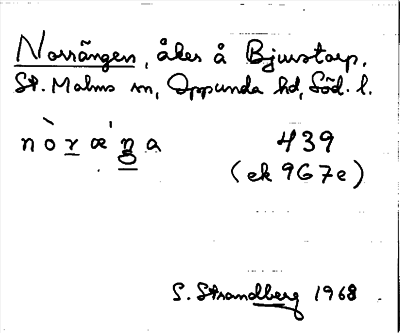 Norrängen, åker å Bjurstorp,
St. Malms sn, Oppunda hd, Söd. l.
nòræ̀ŋa 439
(ek 9G7e)
S. Strandberg 1968